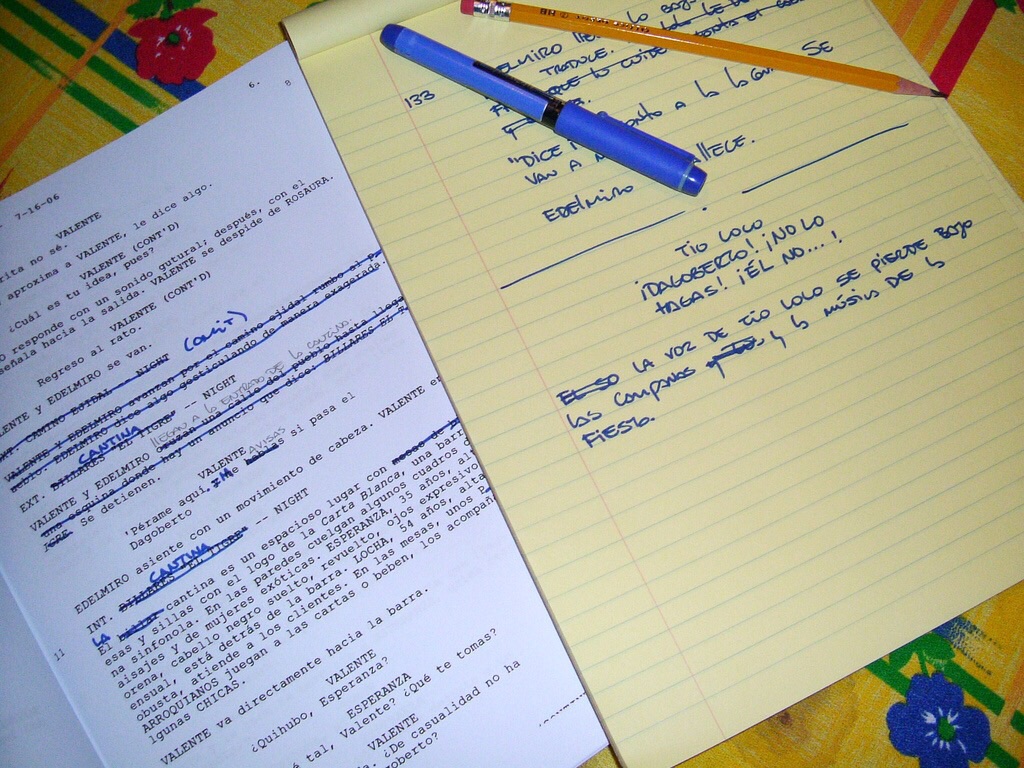 6.
8
7-16-06
VALENTE
rita no sé.
aproxima a VALENTE, le dice algo.
VALENTE (CONT'D)
¿Cuál es tu idea, pues?
responde con un sonido gutural; después, con el
señala hacia la salida. VALENTE se despide de ROSAURA.
VALENTE (CONT'D)
Regreso al rato.
LENTE y EDELMIRO se van.
EXT. CAMINO EJIDAL -- NIGHT (OMIT)
VALENTE y EDELMIRO avanzan por el camino ejidal rumbo al
EDELMIRO dice algo gesticulando de manera exagerada.
CANTINA
EXT. BILLARES EL TIGRE -- NIGHT
LLEGAN A LA ENTRADA DE LA CANTINA.
VALENTE y EDELMIRO cruzan una calle del pueblo hasta
una esquina donde hay un anuncio que dice: BILLARES EL
TIGRE. Se detienen.
VALENTE
AVISAS
'Pérame aquí, me habías si pasa el
Dagoberto
EDELMIRO asiente con un movimiento de cabeza. VALENTE
CANTINA
INT. BILLARES EL TIGRE -- NIGHT
11
LA
El billar cantina es un espacioso lugar con mesas de
esas y sillas con el logo de la Carta Blanca, una barra
na sinfonola. En las paredes cuelgan algunos cuadros
aisajes y de mujeres exóticas. ESPERANZA, 35 años,
orena, cabello negro suelto, revuelto, ojos expresivos
ensual, está detrás de la barra. LOCHA, 54 años, alta
obusta, atiende a los clientes. En las mesas, unos
ARROQUIANOS juegan a las cartas o beben, los
lgunas CHICAS.
VALENTE va directamente hacia la barra.
VALENTE
¿Quihubo, Esperanza?
ESPERANZA
é tal, Valente? ¿Qué te tomas?
VALENTE
¿De casualidad no ha
goberto?
HB
133
TRADUCE.
SE
"DICE
A LO
VAN A
EDELMIRO
TIO LOCO
¡DAGOBERTO! ¡NO LO
HAGAS! ¡ÉL NO...!
LA VOZ DE TIO LOCO SE PIERDE BAJO
las campanas y la música de la
FIESTA.